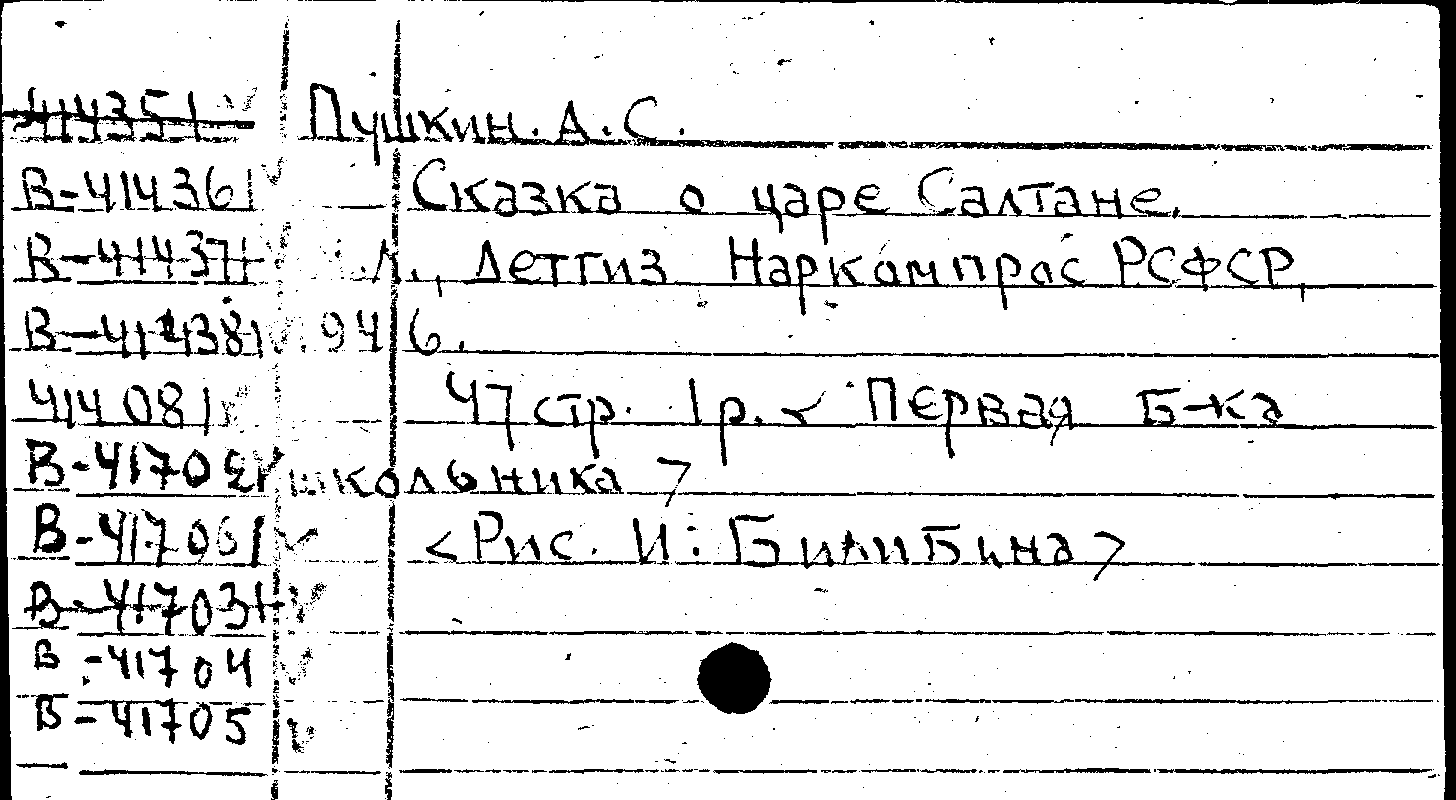 414351 Пушкин. А. С.
В-414361 Сказка о царе Салтане.
В-414371 Л., Детгиз Наркомпрос РСФСР,
В-414381 1946.
414081 47 стр. 1 р. < Первая Б-ка
В-41702 школьника >
В-417061 <Рис. И. Билибина>
В-417031
В-41704
В-41705